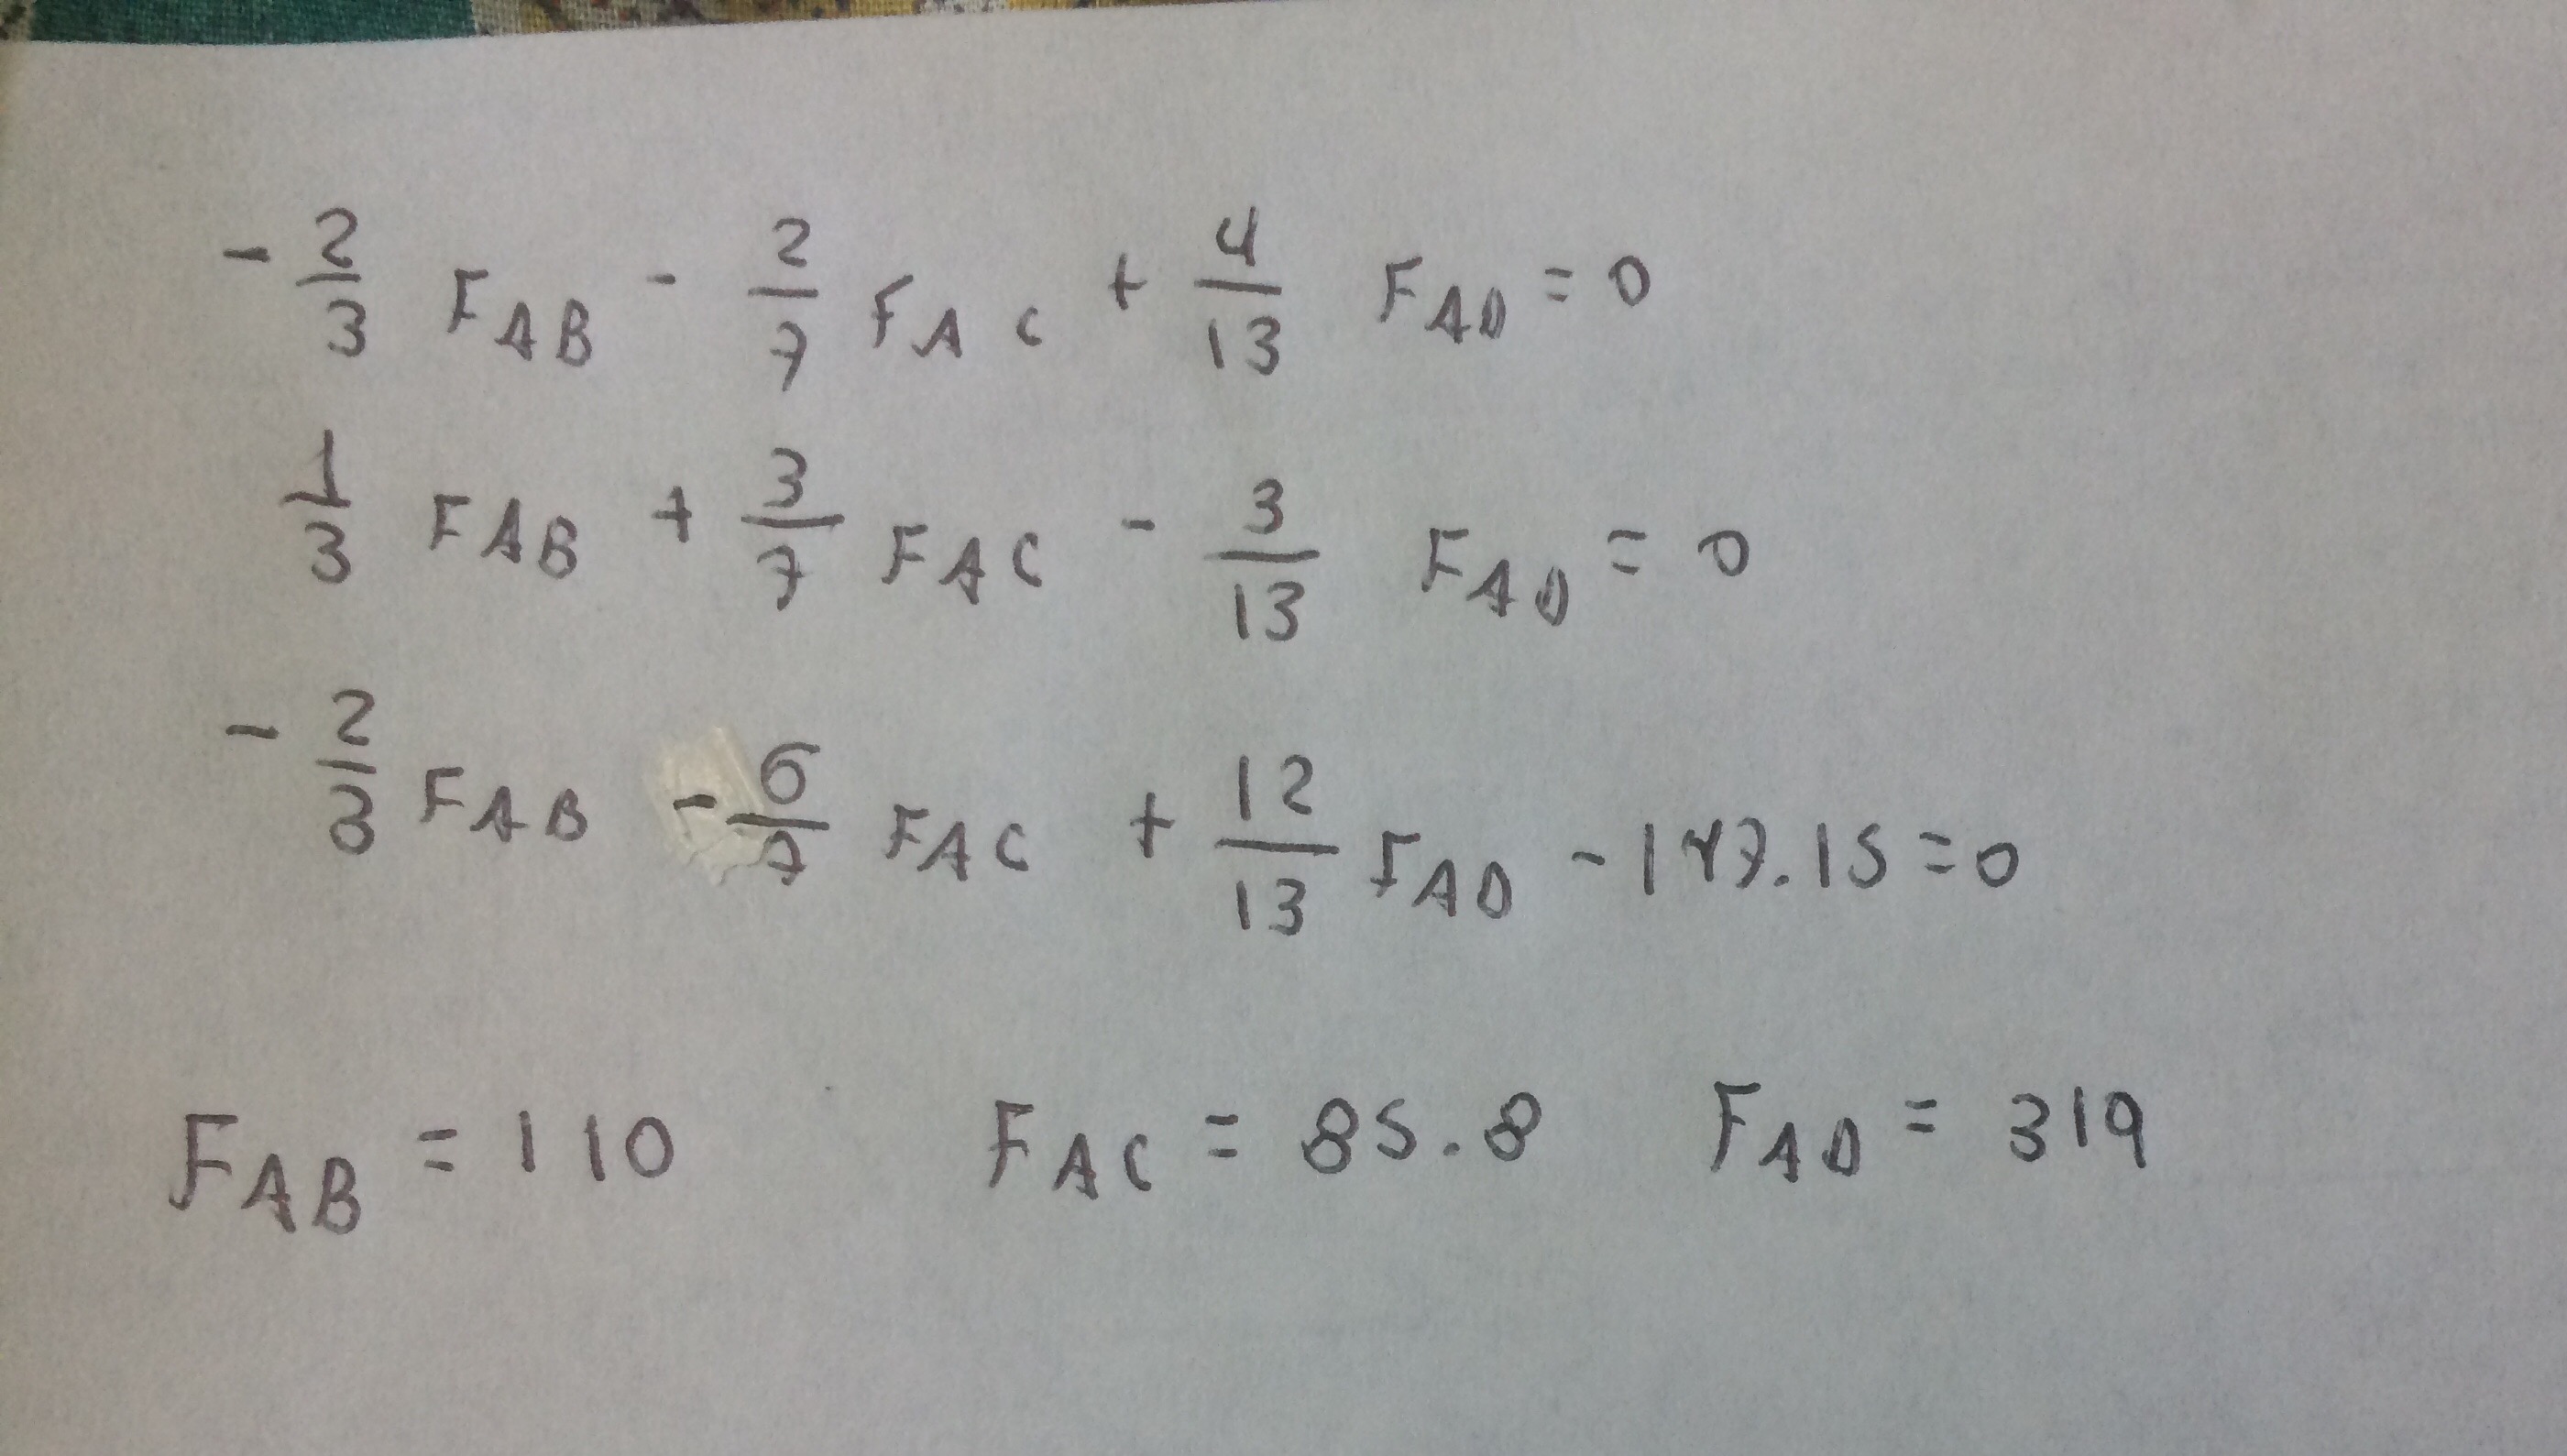 - 2/3 F_AB - 2/7 F_AC + 4/13 F_AD = 0
1/3 F_AB + 3/7 F_AC - 3/13 F_AD = 0
- 2/3 F_AB - 6/7 F_AC + 12/13 F_AD - 147.15 = 0
F_AB = 110 F_AC = 85.8 F_AD = 319